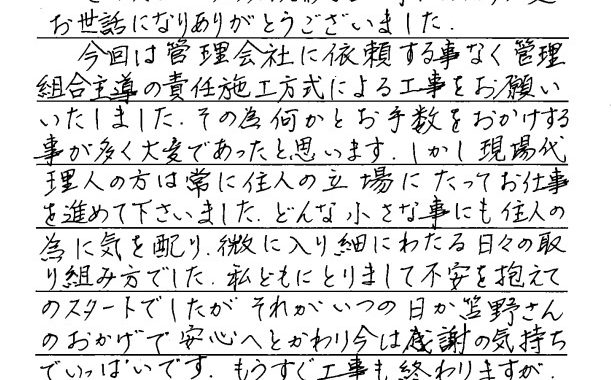 お世話になりありがとうございました.
今回は管理会社に依頼する事なく管理
組合主導の責任施工方式による工事をお願い
いたしました. その為何かとお手数をおかけする
事が多く大変であったと思います. しかし現場代
理人の方は常に住人の立場にたってお仕事
を進めて下さいました. どんな小さな事にも住人の
為に気を配り. 微に入り細にわたる日々の取
り組み方でした. 私どもにとりまして不安を抱えて
のスタートでしたが それがいつの日か笘野さん
のおかげで安心へとかわり今は感謝の気持ち
でいっぱいです. もうすぐ工事も終わりますが.